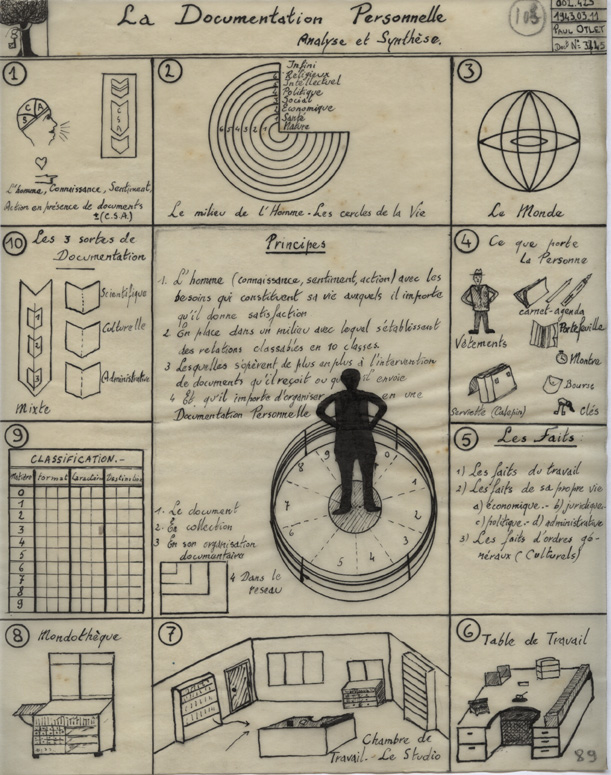 La Documentation Personnelle
Analyse et Synthèse.
108
002.425
1943.03.11
PAUL OTLET
1
S C A
C
S
A
L'homme, Connaissance, Sentiment,
Action en présence de documents
(C.S.A.)
2
Infini
Religieux
Intellectuel
Politique
Social
Économique
Santé
Nature
6 5 4 3 2 1
Le milieu de l'Homme - Les cercles de la Vie
3
Le Monde
10
Les 3 sortes de
Documentation
1
2
3
Scientifique
Culturelle
Administrative
Mixte
Principes
1. L'homme (connaissance, sentiment, action) avec les
besoins qui constituent sa vie auxquels il importe
qu'il donne satisfaction
2 En place dans un milieu avec lequel s'établissent
des relations classables en 10 classes.
3 Lesquelles s'opèrent de plus en plus à l'intervention
de documents qu'il reçoit ou qu' il envoie
4 Et qu'il importe d'organiser en une
Documentation Personnelle
8 9 0 1 2 3 4 5 6 7
1- Le document
2- En collection
3 En son organisation
documentaire
4 Dans le
reseau
4
Ce que porte
La Personne
Vêtements
carnet-agenda
Portefeuille
Montre
Bourse
Serviette (Calepin)
Clés
5
Les Faits:
1) Les faits du travail
2) Les faits de sa propre vie
a) économique.- b) juridique.-
c) politique.- d) administrative
3) Les faits d'ordres gé-
néraux (Culturels)
9
CLASSIFICATION.-
Matière format Caractère Destination
0
1
2
3
4
5
6
7
8
9
8
Mondothèque
7
Chambre de
Travail.- Le Studio
6
Table de Travail
89